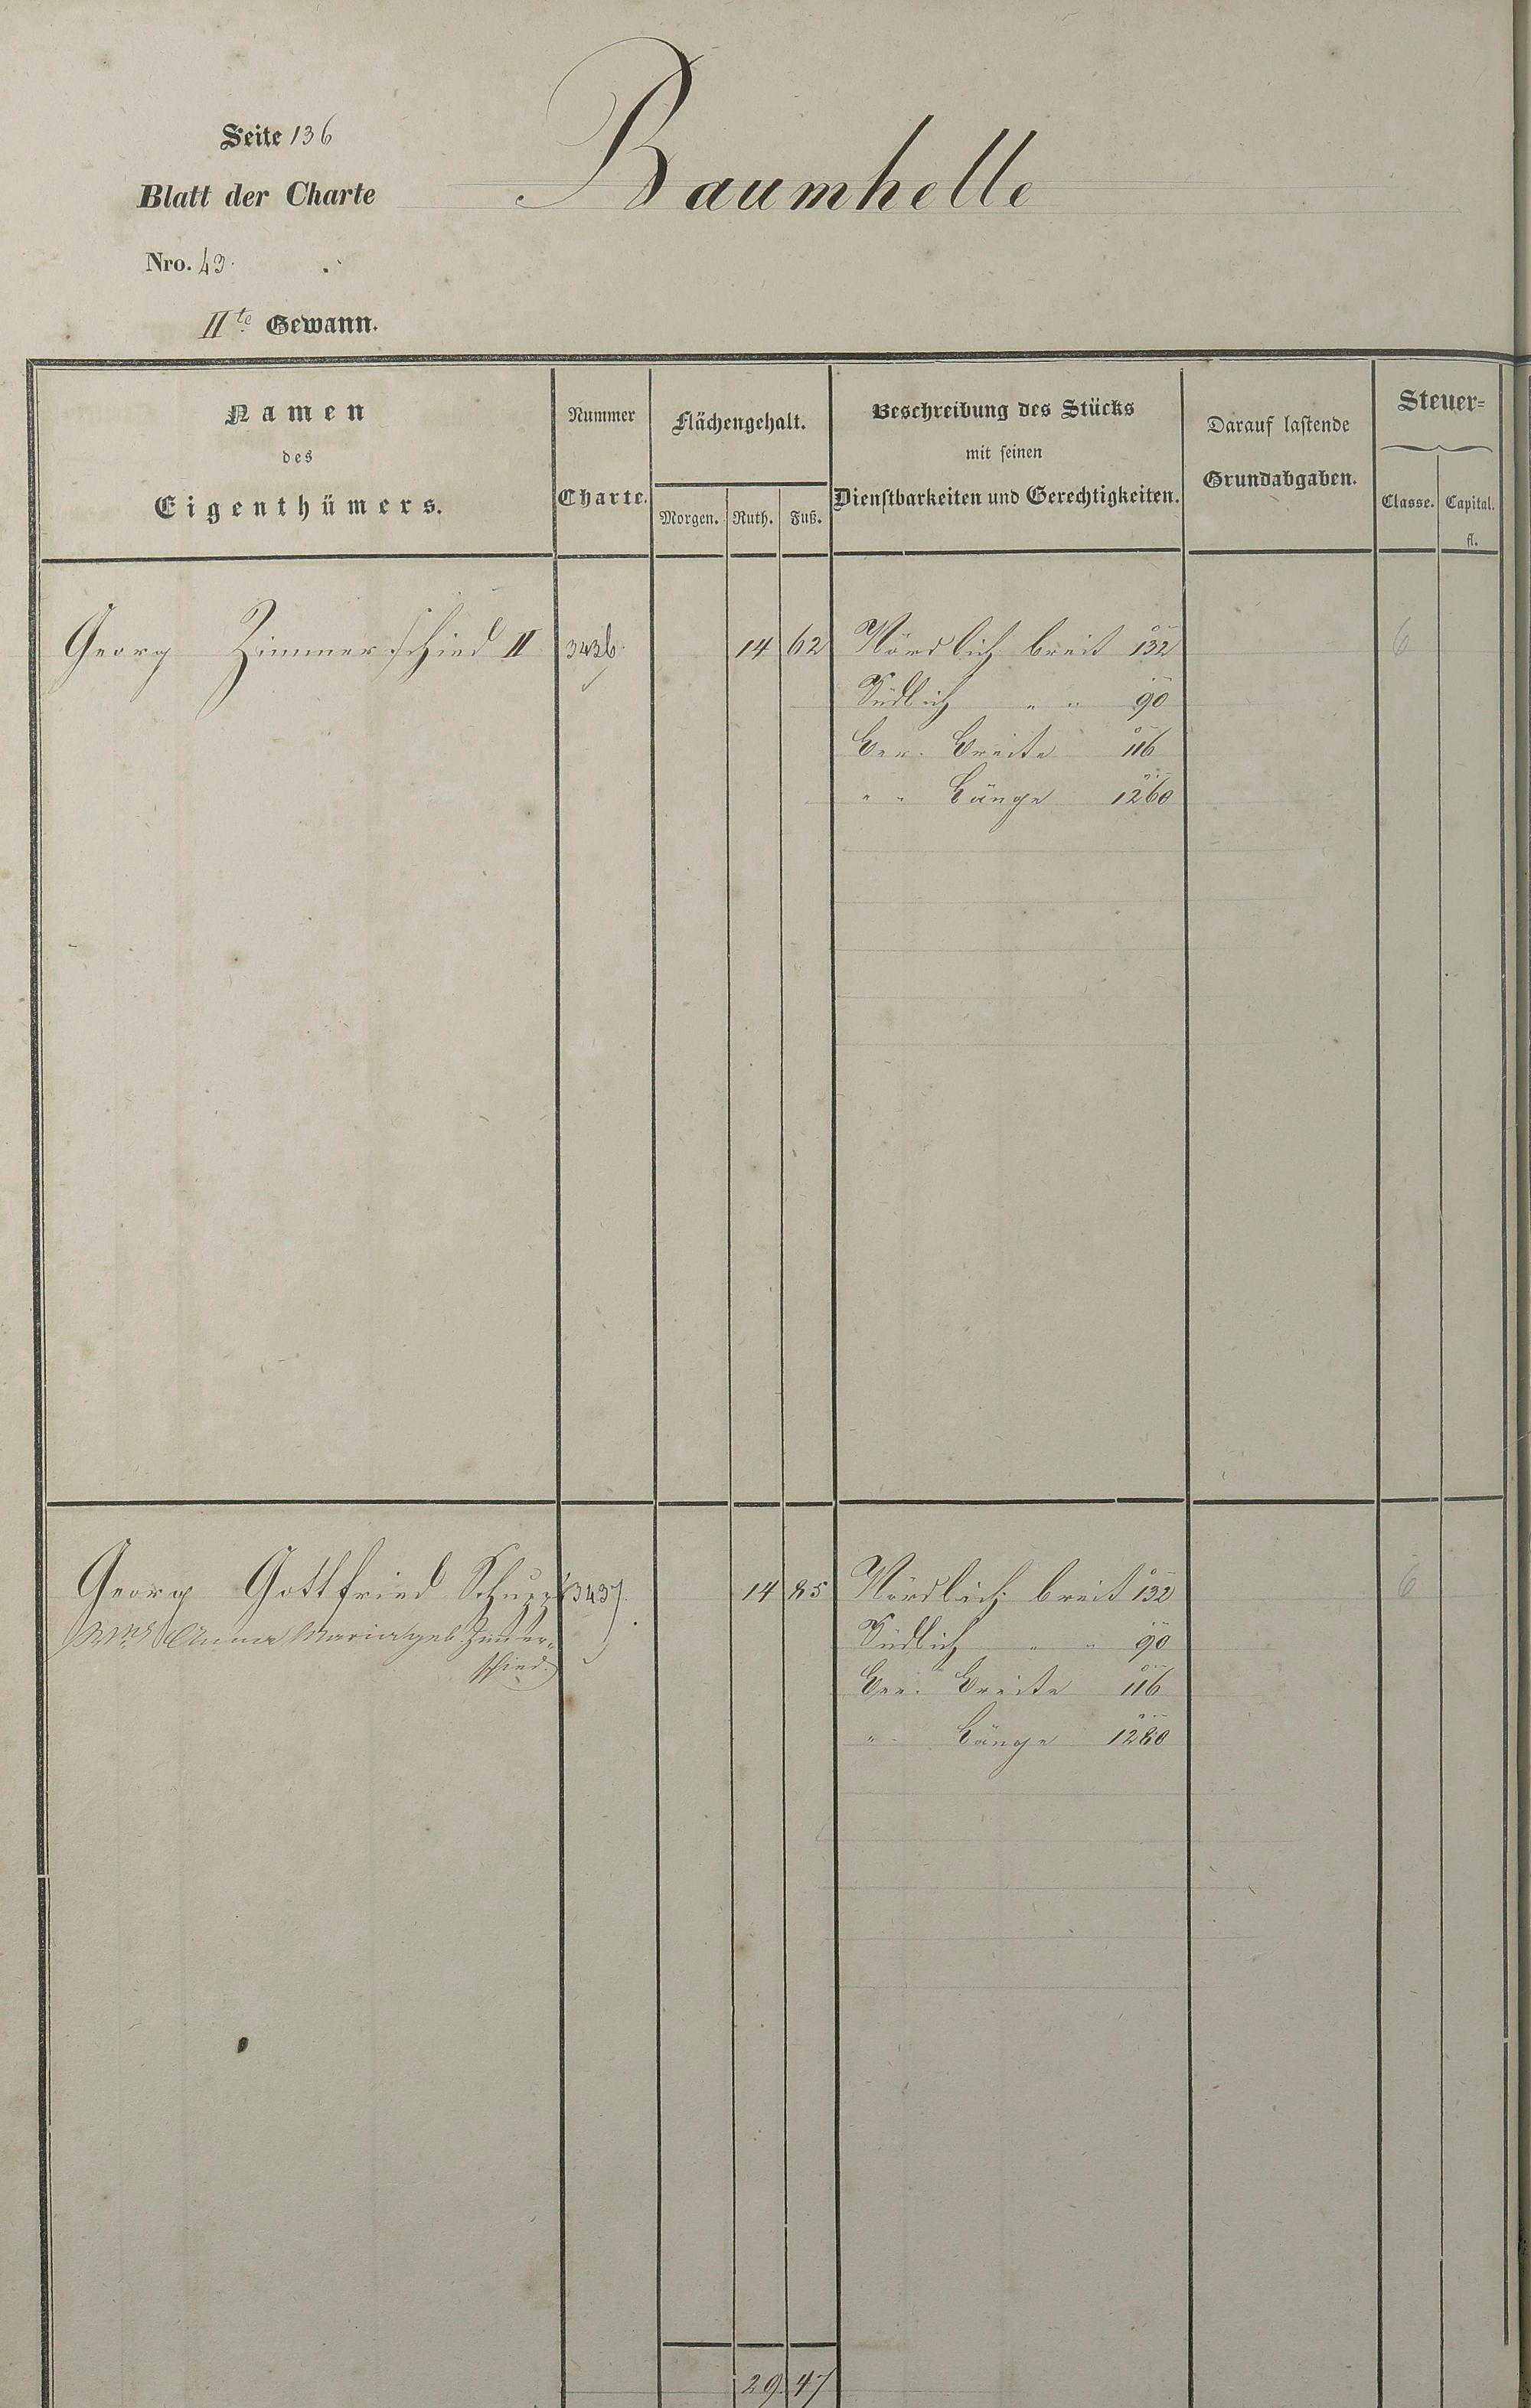 Seite 136
Baumhelle
Blatt der Charte
Nro. 43.
IIte Gewann.
Namen
des
Eigenthümers.
Nummer
Charte.
Flächengehalt.
Morgen. Ruth. Fuß.
Beschreibung des Stücks
mit seinen
Dienstbarkeiten und Gerechtigkeiten.
Darauf lastende
Grundabgaben.
Steuer=
Classe. Capital.
fl.
Georg Zimmerschied II 3436. 14 62 Nördlich breit 132 6
Südlich " " 90
Ger. Breite 116
" " Länge 1260
Georg Gottfried Schupp 3437. 14 85 Nördlich breit 132 6
Anna Maria geb. Zimer=
schied.
Südlich " " 90
Ger. Breite 116
" Länge 1280
29 47